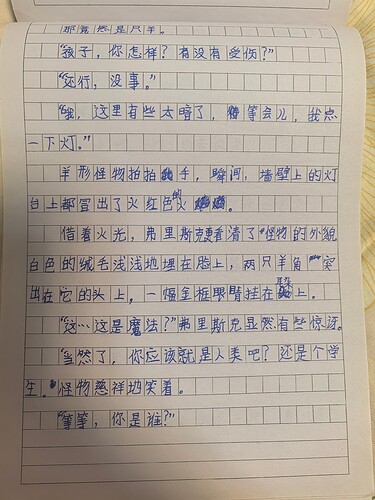 那竟然是只羊。
“孩子，你怎样？有没有受伤？”
“还行，没事。”
“哦，这里有些太暗了，稍等会儿，我点
一下灯。”
羊形怪物拍拍手，瞬间，墙壁上的灯
台上都冒出了火红色的火。
借着火光，弗里斯克更看清了怪物的外貌
白色的绒毛浅浅地埋在脸上，两只羊角突
出在它的头上，一幅金框眼睛挂在耳朵上。
“这…这是魔法？”弗里斯克显然有些惊讶。
“当然了，你应该就是人类吧？还是个学
生。”怪物慈祥地笑着。
“等等，你是谁？”